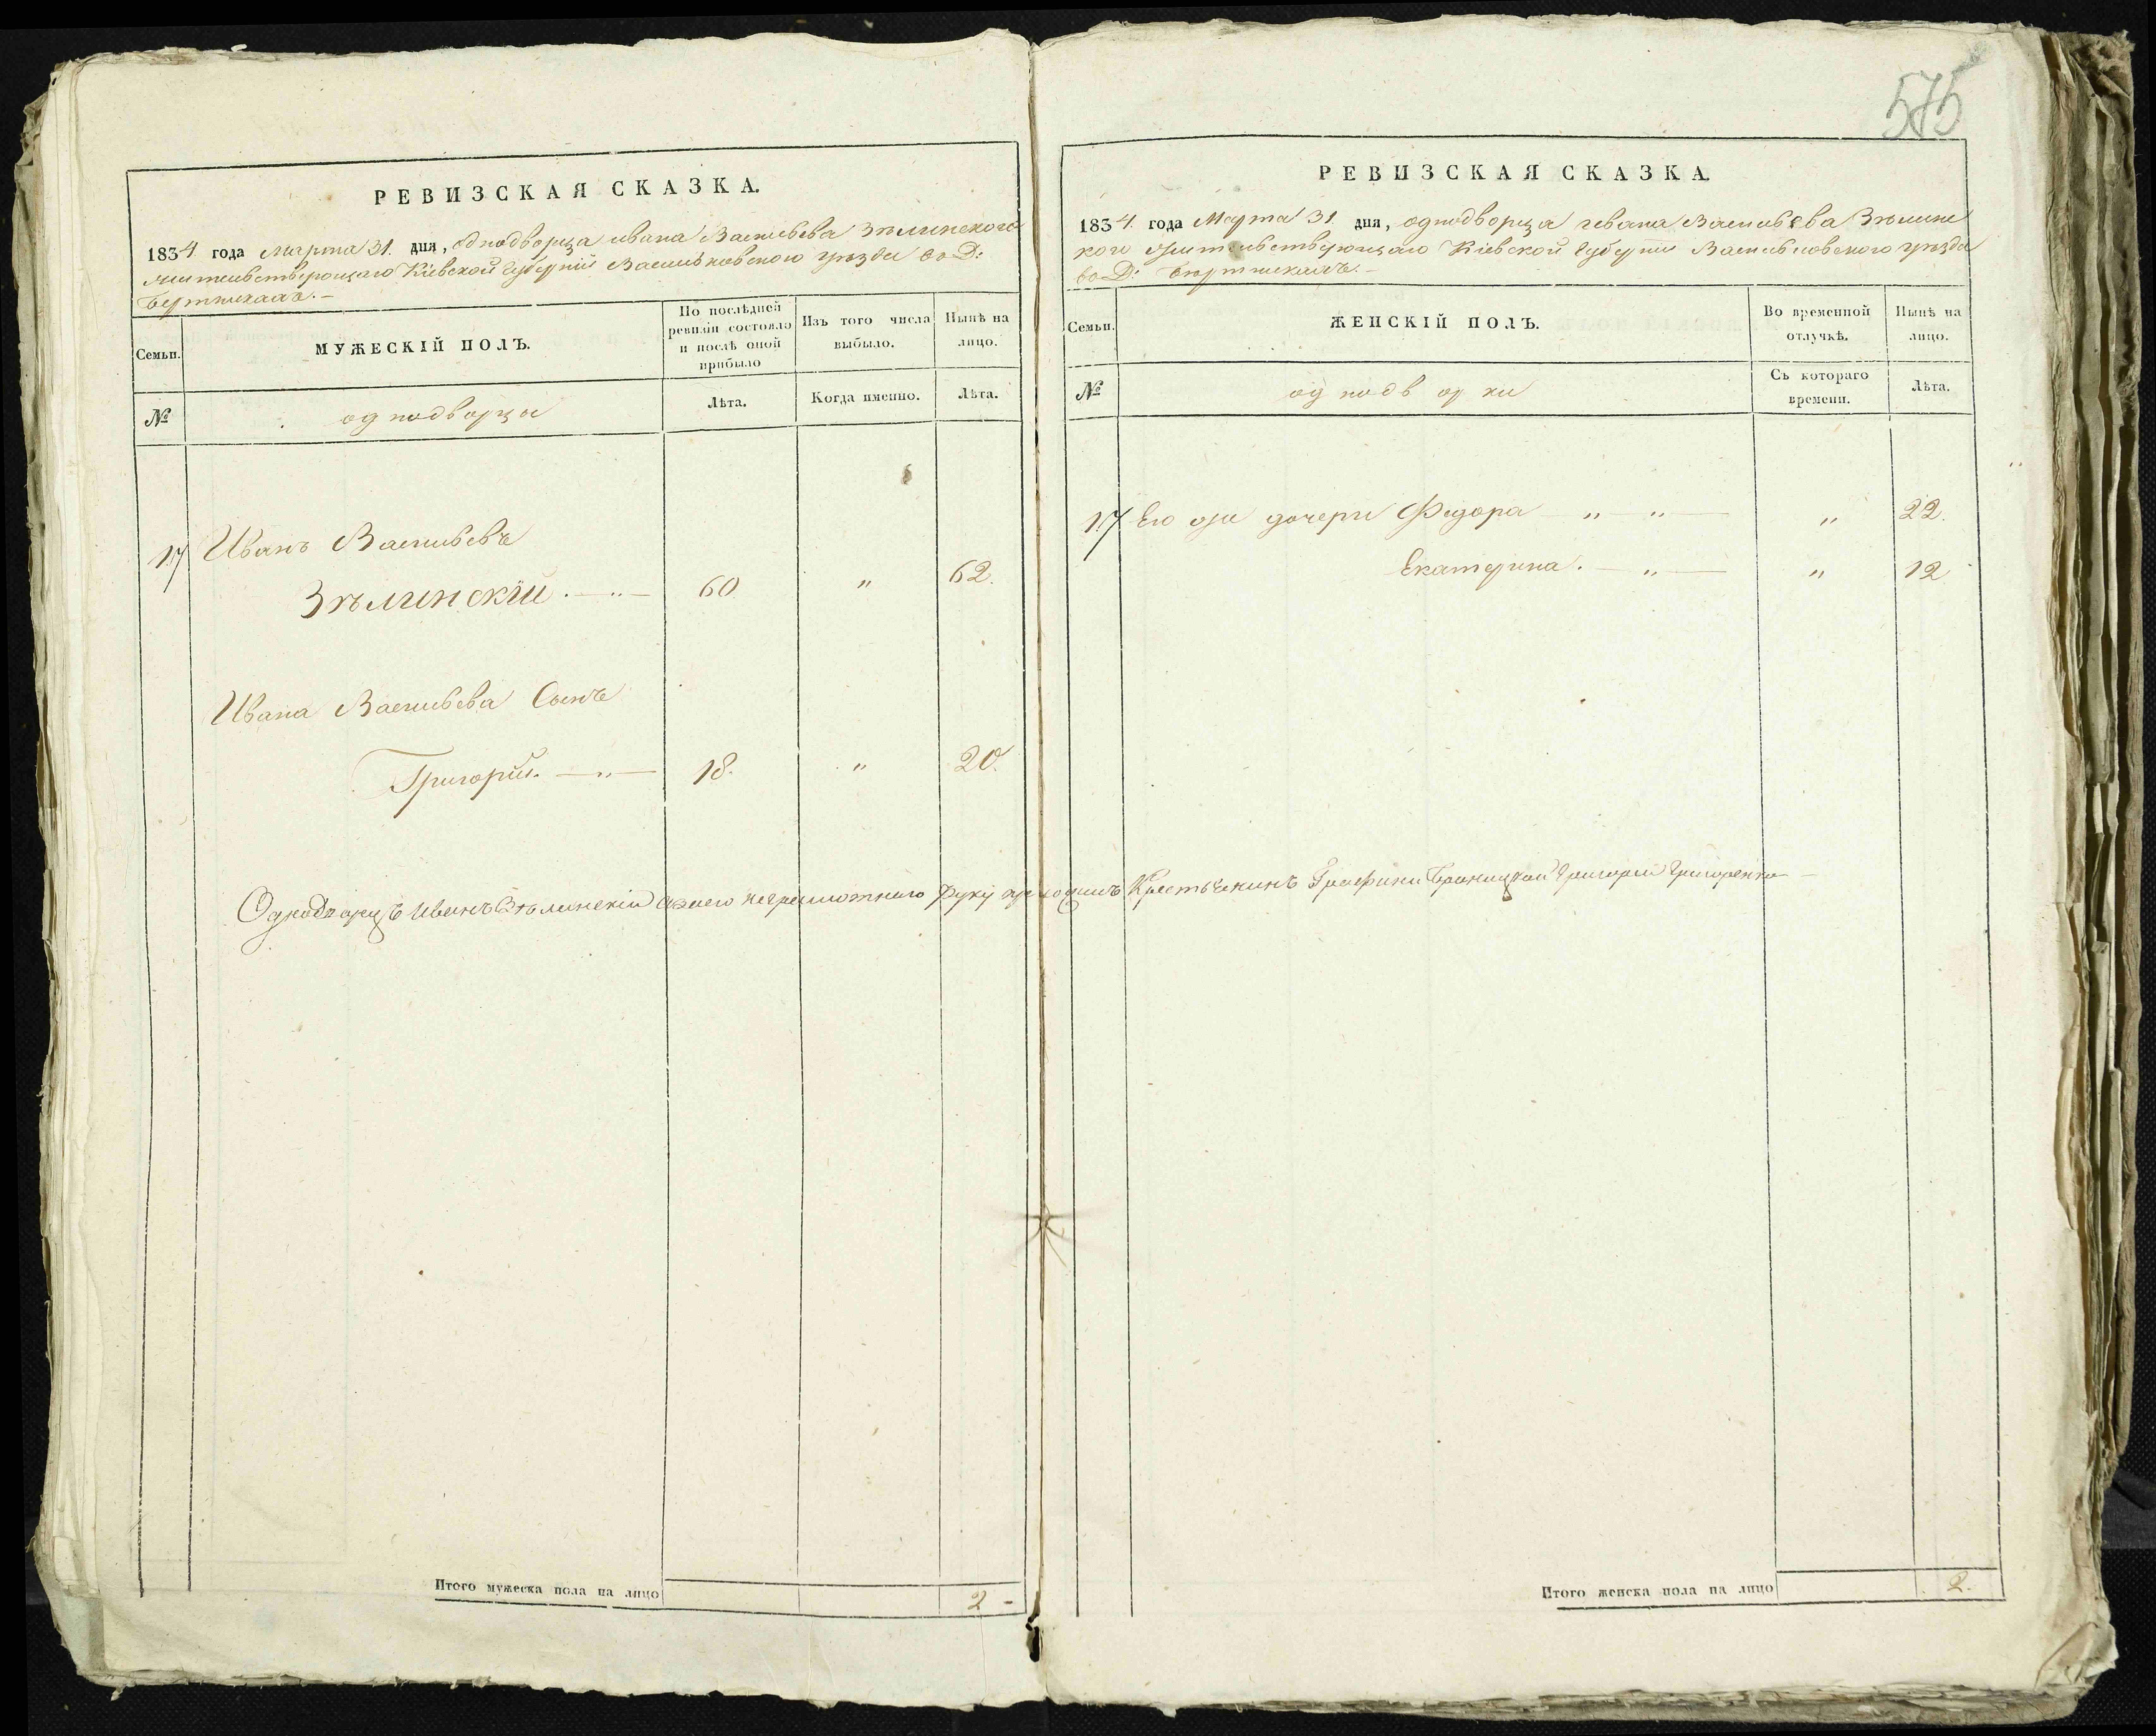 575
РЕВИЗСКАЯ СКАЗКА.
1834 года Марта 31. дня, однодворца ивана Васильева Зѣлинского
жительствующаго Кіевской Губерній Васильковского уѣзда во Д:
РЕВИЗСКАЯ СКАЗКА
1834 года Марта 31 дня, однодворца ивана Васильева Зѣлинс
кого жительствующаго Кіевской Губерніи Васильковского уѣзда
во Д:
Семьи.
МУЖЕСКІЙ ПОЛЪ.
По послѣдней
ревизіи состояло
и послѣ оной
прибыло
Изъ того числа
выбыло.
Нынѣ на
лицо.
№
однодворцы
Лѣта.
Когда именно.
Лѣта.
Семьи.
ЖЕНСКІЙ ПОЛЪ.
Во временной
отлучкѣ.
Нынѣ на
лицо.
№
однодворки
Съ котораго
времени.
Лѣта.
17 Иванъ Васильевъ
Зѣлинскій . — „ — 60 „ 62.
Ивана Васильева Сынъ
Григорій. — „ — 18. „ 20.
17 Его дочери Федора „ „ — „ 22.
Екатерина . — „ — „ 12
Однодворецъ Иванъ Зѣлинскій а за него неграмотнаго руку приложилъ Крестьянинъ Графини Браницкой Григорій Григоренко —
Итого мужеска пола на лицо 2 -
Итого женска пола на лицо 2.